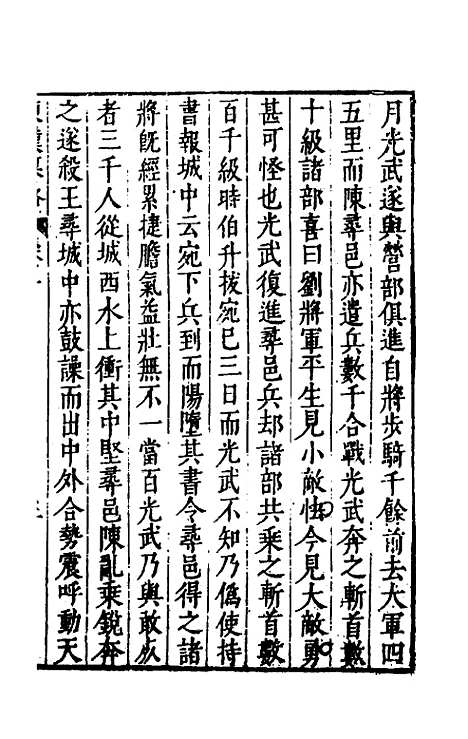 月光武遂與營部俱進自將步騎千餘前去大軍四
五里而陳尋邑亦遣兵數千合戰光武奔之斬首數
十級諸部喜曰劉將軍平生見小敵怯今見大敵勇
甚可怪也光武復進尋邑兵却諸部共乘之斬首數
百千級時伯升拔宛已三日而光武不知乃僞使持
書報城中云宛下兵到而陽墮其書令尋邑得之諸
將旣經累捷膽氣益壯無不一當百光武乃與敢死
者三千人從城西水上衝其中堅尋邑陳亂乘銳奔
之遂殺王尋城中亦鼓譟而出中外合勢震呼動天